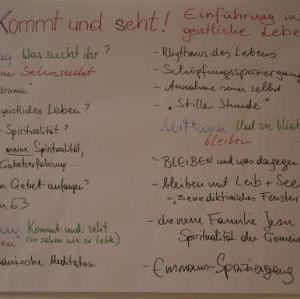 Kommt und seht! Einführung ins
geistliche Leben
Was sucht ihr?
Sehnsucht
geistliches Leben?
Spiritualität?
meine Spiritualität,
Gebetserfahrung...
Gebet anfangen?
63
Kommt und seht
(sie sahen wie er lebt)
Meditation
- Rhythmus des Lebens
- Schöpfungsspaziergang
- Annahme seiner selbst
- "Stille Stunde"
Mittwoch Und sie blieben
bleiben
- BLEIBEN und was dagegen
- bleiben mit Leib + Seele
- die neue Familie Jesu
Spiritualität der Gemein
- Emmaus-Spaziergang